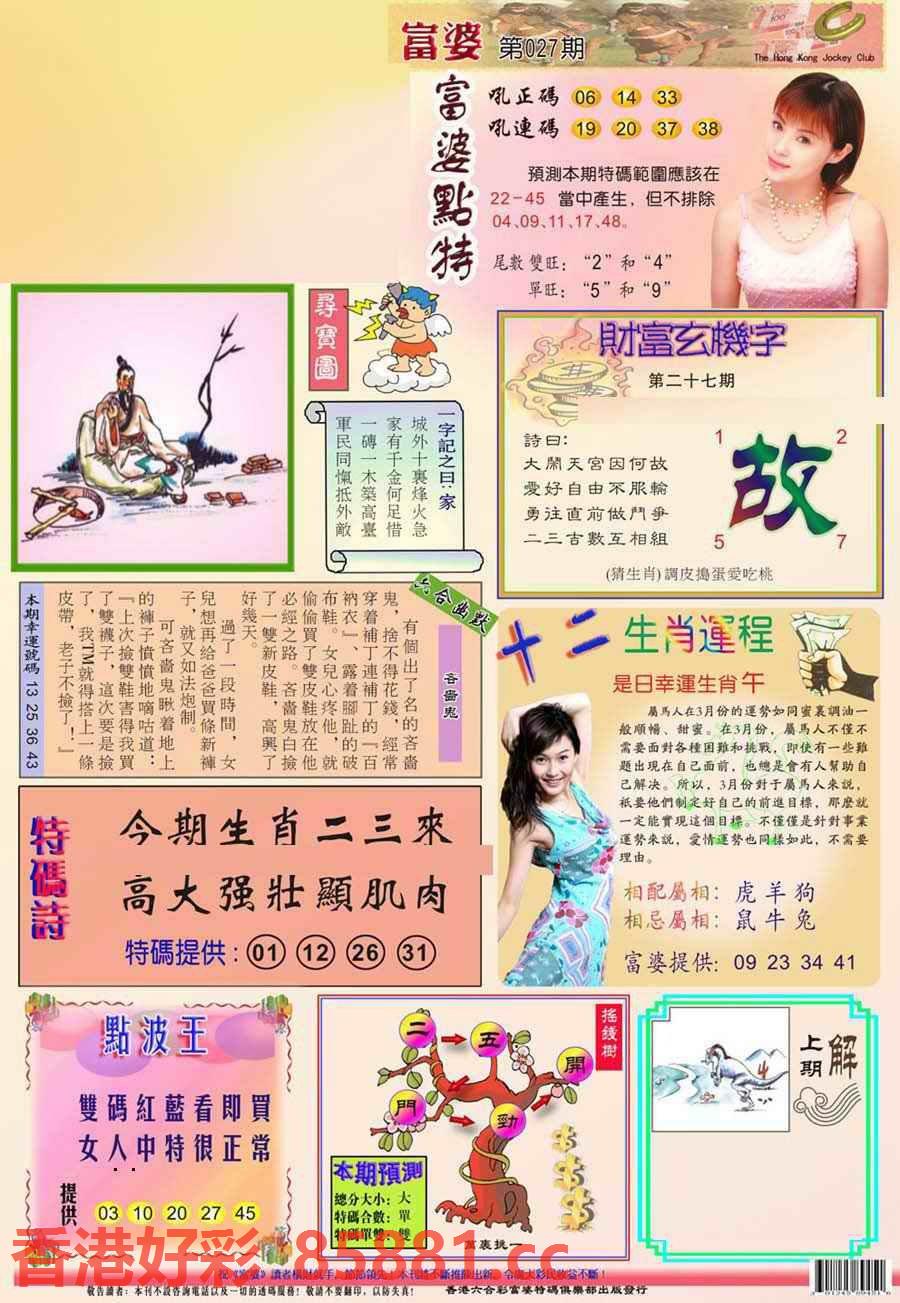 富婆 第027期
The Hong Kong Jockey Club
富婆點特
吼正碼 06 14 33
吼連碼 19 20 37 38
預測本期特碼範圍應該在
22-45 當中產生，但不排除
04、09、11、17、48。
尾數雙旺：“2”和“4”
單旺：“5”和“9”
尋寶圖
一字記之曰：家
城外十裏烽火急
家有千金何足惜
一磚一木築高臺
軍民同愾抵外敵
財富玄機字
第二十七期
詩曰：
大鬧天宮因何故
愛好自由不服輸
勇往直前做鬥爭
二三吉數互相組
1 2
故
5 7
(猜生肖)調皮搗蛋愛吃桃
六合幽默
吝嗇鬼
有個出了名的吝嗇
鬼，捨不得花錢，經常
穿着補丁連補丁的『百
衲衣』、露着腳趾的破
布鞋。女兒心疼他，就
偷偷買了雙皮鞋放在他
必經之路。吝嗇鬼白撿
了一雙新皮鞋，高興了
好幾天。
過了一段時間，女
兒想再給爸爸買條新褲
子，就又如法炮制。
可吝嗇鬼瞅着地上
的褲子憤憤地嘀咕道：
『上次撿雙鞋害得我買
了雙襪子，這次要是撿
了，我TM就得搭上一條
皮帶，老子不撿了！』
本期幸運號碼 13 25 36 43
十二生肖運程
是日幸運生肖 午
屬馬人在3月份的運勢如同蜜裏調油一
般順暢、甜蜜。在3月份，屬馬人不僅不
需要面對各種困難和挑戰，即使有一些難
題出現在自己面前，也總是會有人幫助自
己解决。所以，3月份對于屬馬人来説，
祇要他們制定好自己的前進目標，那麼就
一定能實現這個目標。不僅僅是針對事業
運勢来説，愛情運勢也同樣如此，不需要
理由。
相配屬相：虎羊狗
相忌屬相：鼠牛兔
富婆提供：09 23 34 41
特碼詩
今期生肖二三來
高大强壯顯肌肉
特碼提供：01 12 26 31
點波王
雙碼紅藍看即買
女人中特很正常
提供 03 10 20 27 45
搖錢樹
二 五 開
門 勁
本期預測
總分大小：大
特碼合數：單
特碼單雙：雙
萬裏挑一
上期解
香港好彩 85881.cc
敬告讀者：本刊不設咨詢電話以及一切的透碼服務！敬請不要翻印，以防失真！
香港六合彩富婆特碼俱樂部出版發行